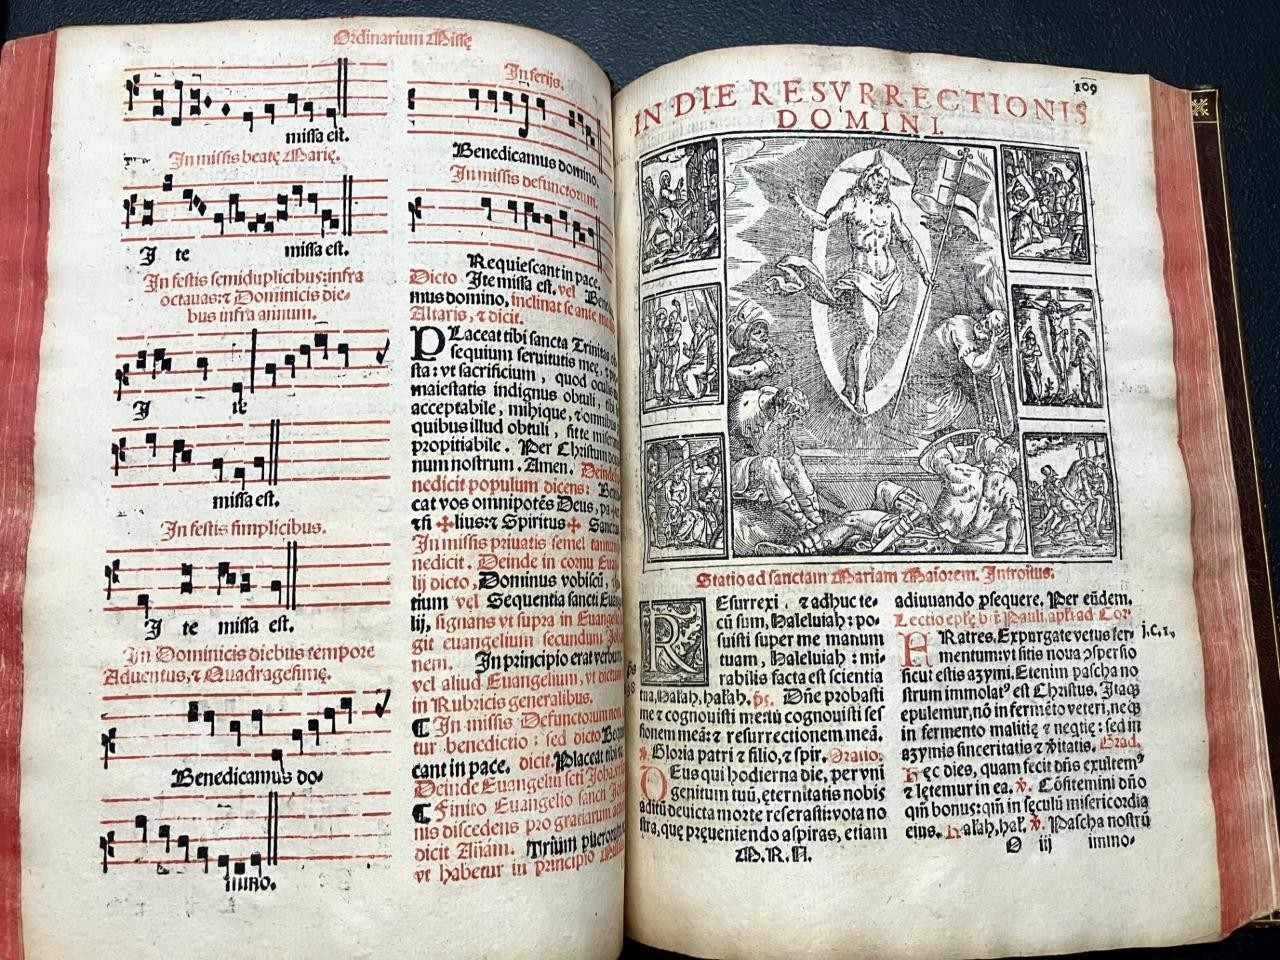 Ordinarium Missę
missa est.
In missis beatę Marię.
I te missa est.
In festis semiduplicibus: infra
octauas: ⁊ Dominicis die-
bus infra annum.
I te
missa est.
In festis simplicibus.
I te missa est.
In Dominicis diebus tempore
Aduentus, ⁊ Quadragesimę.
Benedicamus do-
mino.
In ferijs.
Benedicamus domino.
In missis defunctorum.
Requiescant in pace.
Dicto Ite missa est, vel Bene
mus domino, inclinat se ante
Altaris, ⁊ dicit.
PLaceat tibi sancta Trinitas
sequium seruitutis meę, ⁊
sta: vt sacrificium, quod oculis
maiestatis indignus obtuli, tibi
acceptabile, mihique, ⁊ omnibus
quibus illud obtuli, sit te
propitiabile. Per Christum
num nostrum. Amen. Deinde
nedicit populum dicens:
cat vos omnipotēs Deus, pa
⁊ fi ✠ lius: ⁊ Spiritus ✠ Sanctus
In missis priuatis semel tantum
nedicit. Deinde in cornu
lij dicto, Dominus vobiscū,
tium vel Sequentia sancti Euan
lij, signans vt supra in Euange
git euangelium secundum
nem. In principio erat verbum
vel aliud Euangelium, vt dictum
in Rubricis generalibus.
¶ In missis Defunctorum non
tur benedictio: sed dicto Requies
cant in pace. dicit. Placeat tibi
Deinde Euangeliū scti Johan
¶ Finito Euangelio sancti
nis discedens pro gratiarum
dicit Añam. Trium puerorum
vt habetur in principio
109
IN DIE RESVRRECTIONIS
DOMINI.
Statio ad sanctam Mariam Maiorem. Introitus.
REsurrexi, ⁊ adhuc te-
cū sum, Haleluiah: po-
suisti super me manum
tuam, Haleluiah: mi-
rabilis facta est scientia
tua, Halah, halah. ps. Dñe probasti
me ⁊ cognouisti me: tū cognouisti ses
sionem meā: ⁊ resurrectionem meā.
℣. Gloria patri ⁊ filio, ⁊ spir. Oratio.
DEus qui hodierna die, per vni
genitum tuū, ęternitatis nobis
aditū deuicta morte reserasti: vota no
stra, quę pręueniendo aspiras, etiam
M.R.N.
adiuuando psequere. Per eūdem.
Lectio epłę b̄ti Pauli apłi ad Cor.
FRatres. Expurgate vetus fer- j.C.5.
mentum: vt sitis noua ↄspersio
sicut estis azymi. Etenim pascha no
strum immolatꝰ est Christus. Itaqꝫ
epulemur, nō in fermēto veteri, neqꝫ
in fermento malitię ⁊ neqtię: sed in
azymis sinceritatis ⁊ v̄itatis. Grad.
Hęc dies, quam fecit dñs exultemꝰ
⁊ lętemur in ea. ℣. Cōfitemini dño
qm̄ bonus: qm̄ in sęculū misericordia
eius. Halah, hal. ℣. Pascha nostrū
O iij immo-